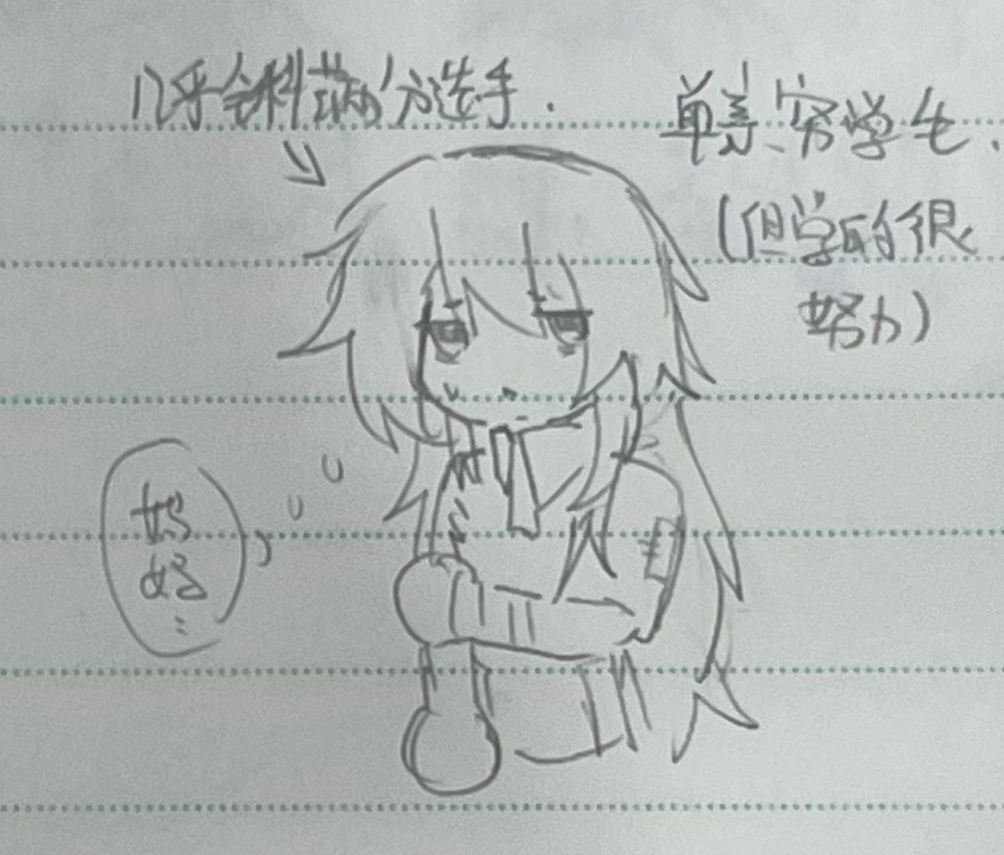 几乎全科满分选手.
单亲、穷学生.
(但学的很
努力)
妈
妈
…